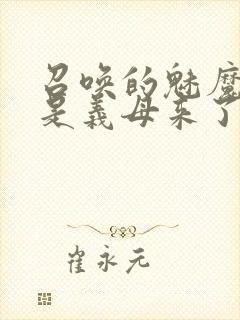 召唤的魅魔
是义母来了
崔永元